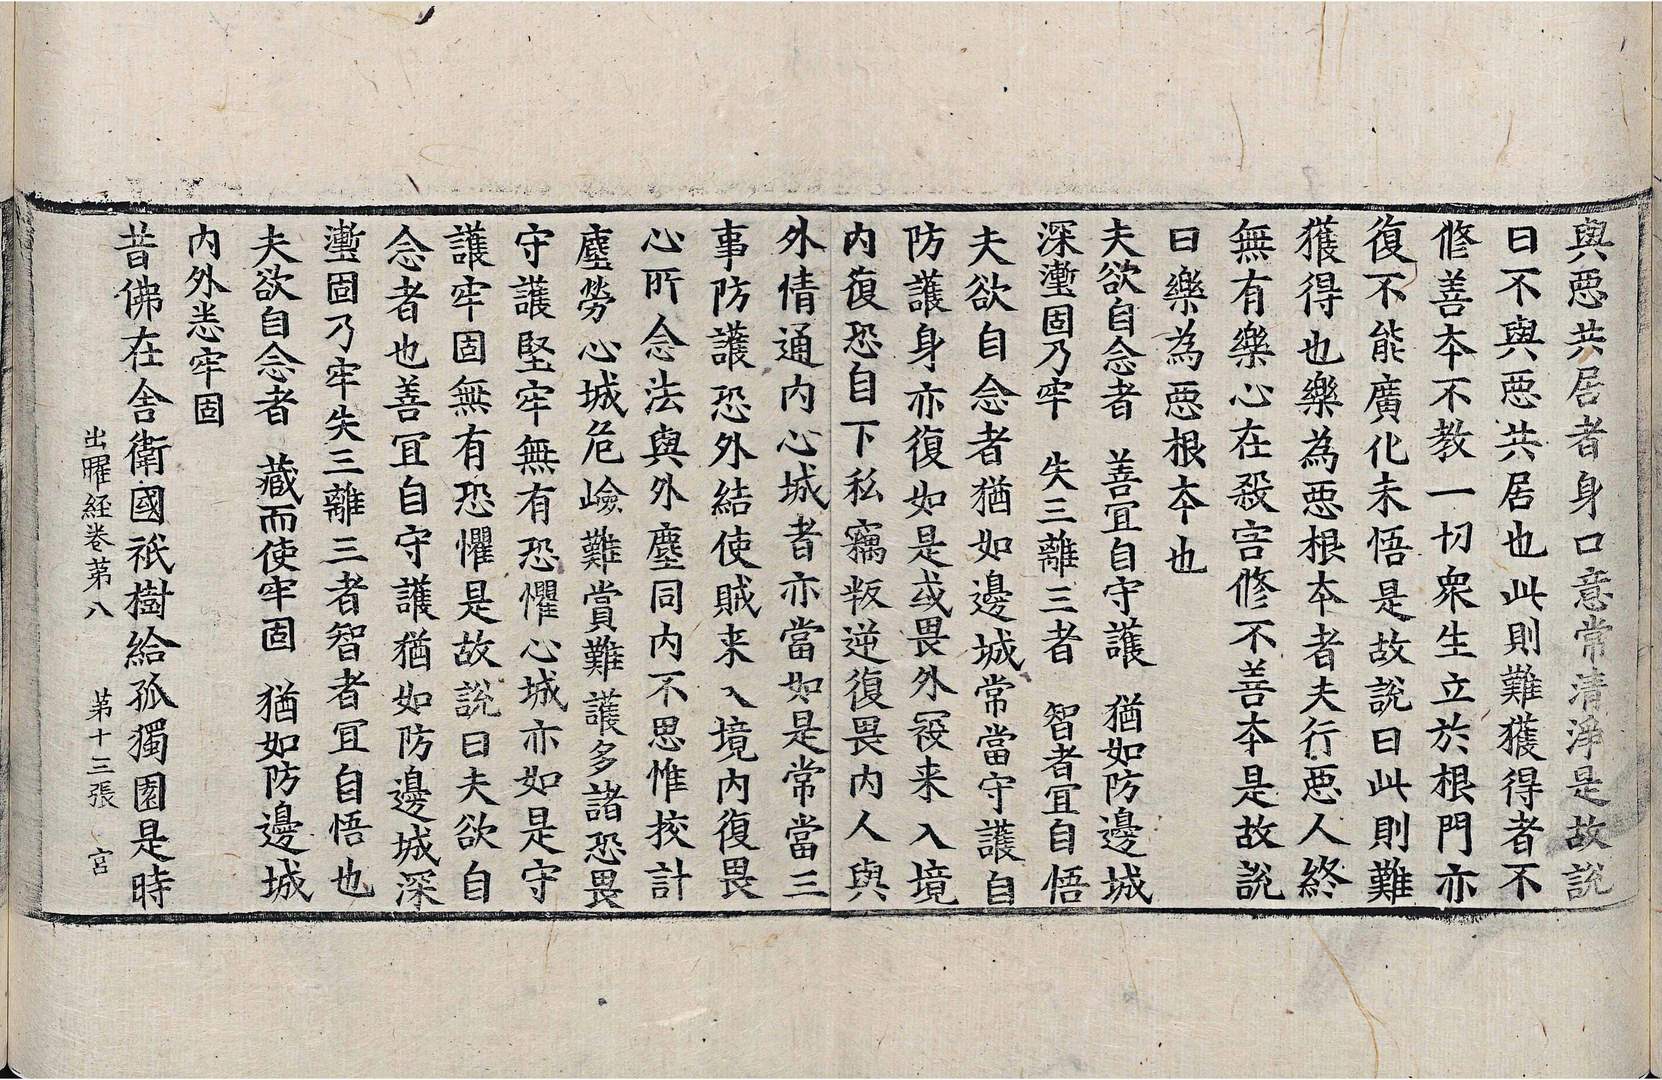 與惡共居者身口意常清淨是故說
曰不與惡共居也此則難獲得者不
修善本不教一切衆生立於根門亦
復不能廣化未悟是故說曰此則難
獲得也樂為惡根本者夫行惡人終
無有樂心在殺害修不善本是故說
曰樂為惡根本也
夫欲自念者 善宜自守護 猶如防邊城
深壍固乃牢 失三離三者 智者宜自悟
夫欲自念者猶如邊城常當守護自
防護身亦復如是或畏外寇来入境
内復恐自下私竊叛逆復畏内人與
外情通内心城者亦當如是常當三
事防護恐外結使賊来入境内復畏
心所念法與外塵同内不思惟挍計
塵勞心城危嶮難賞難護多諸恐畏
守護堅牢無有恐懼心城亦如是守
護牢固無有恐懼是故說曰夫欲自
念者也善宜自守護猶如防邊城深
壍固乃牢失三離三者智者宜自悟也
夫欲自念者 藏而使牢固 猶如防邊城
内外悉牢固
昔佛在舍衛國祇樹給孤獨園是時
出曜経卷第八 第十三張 宫